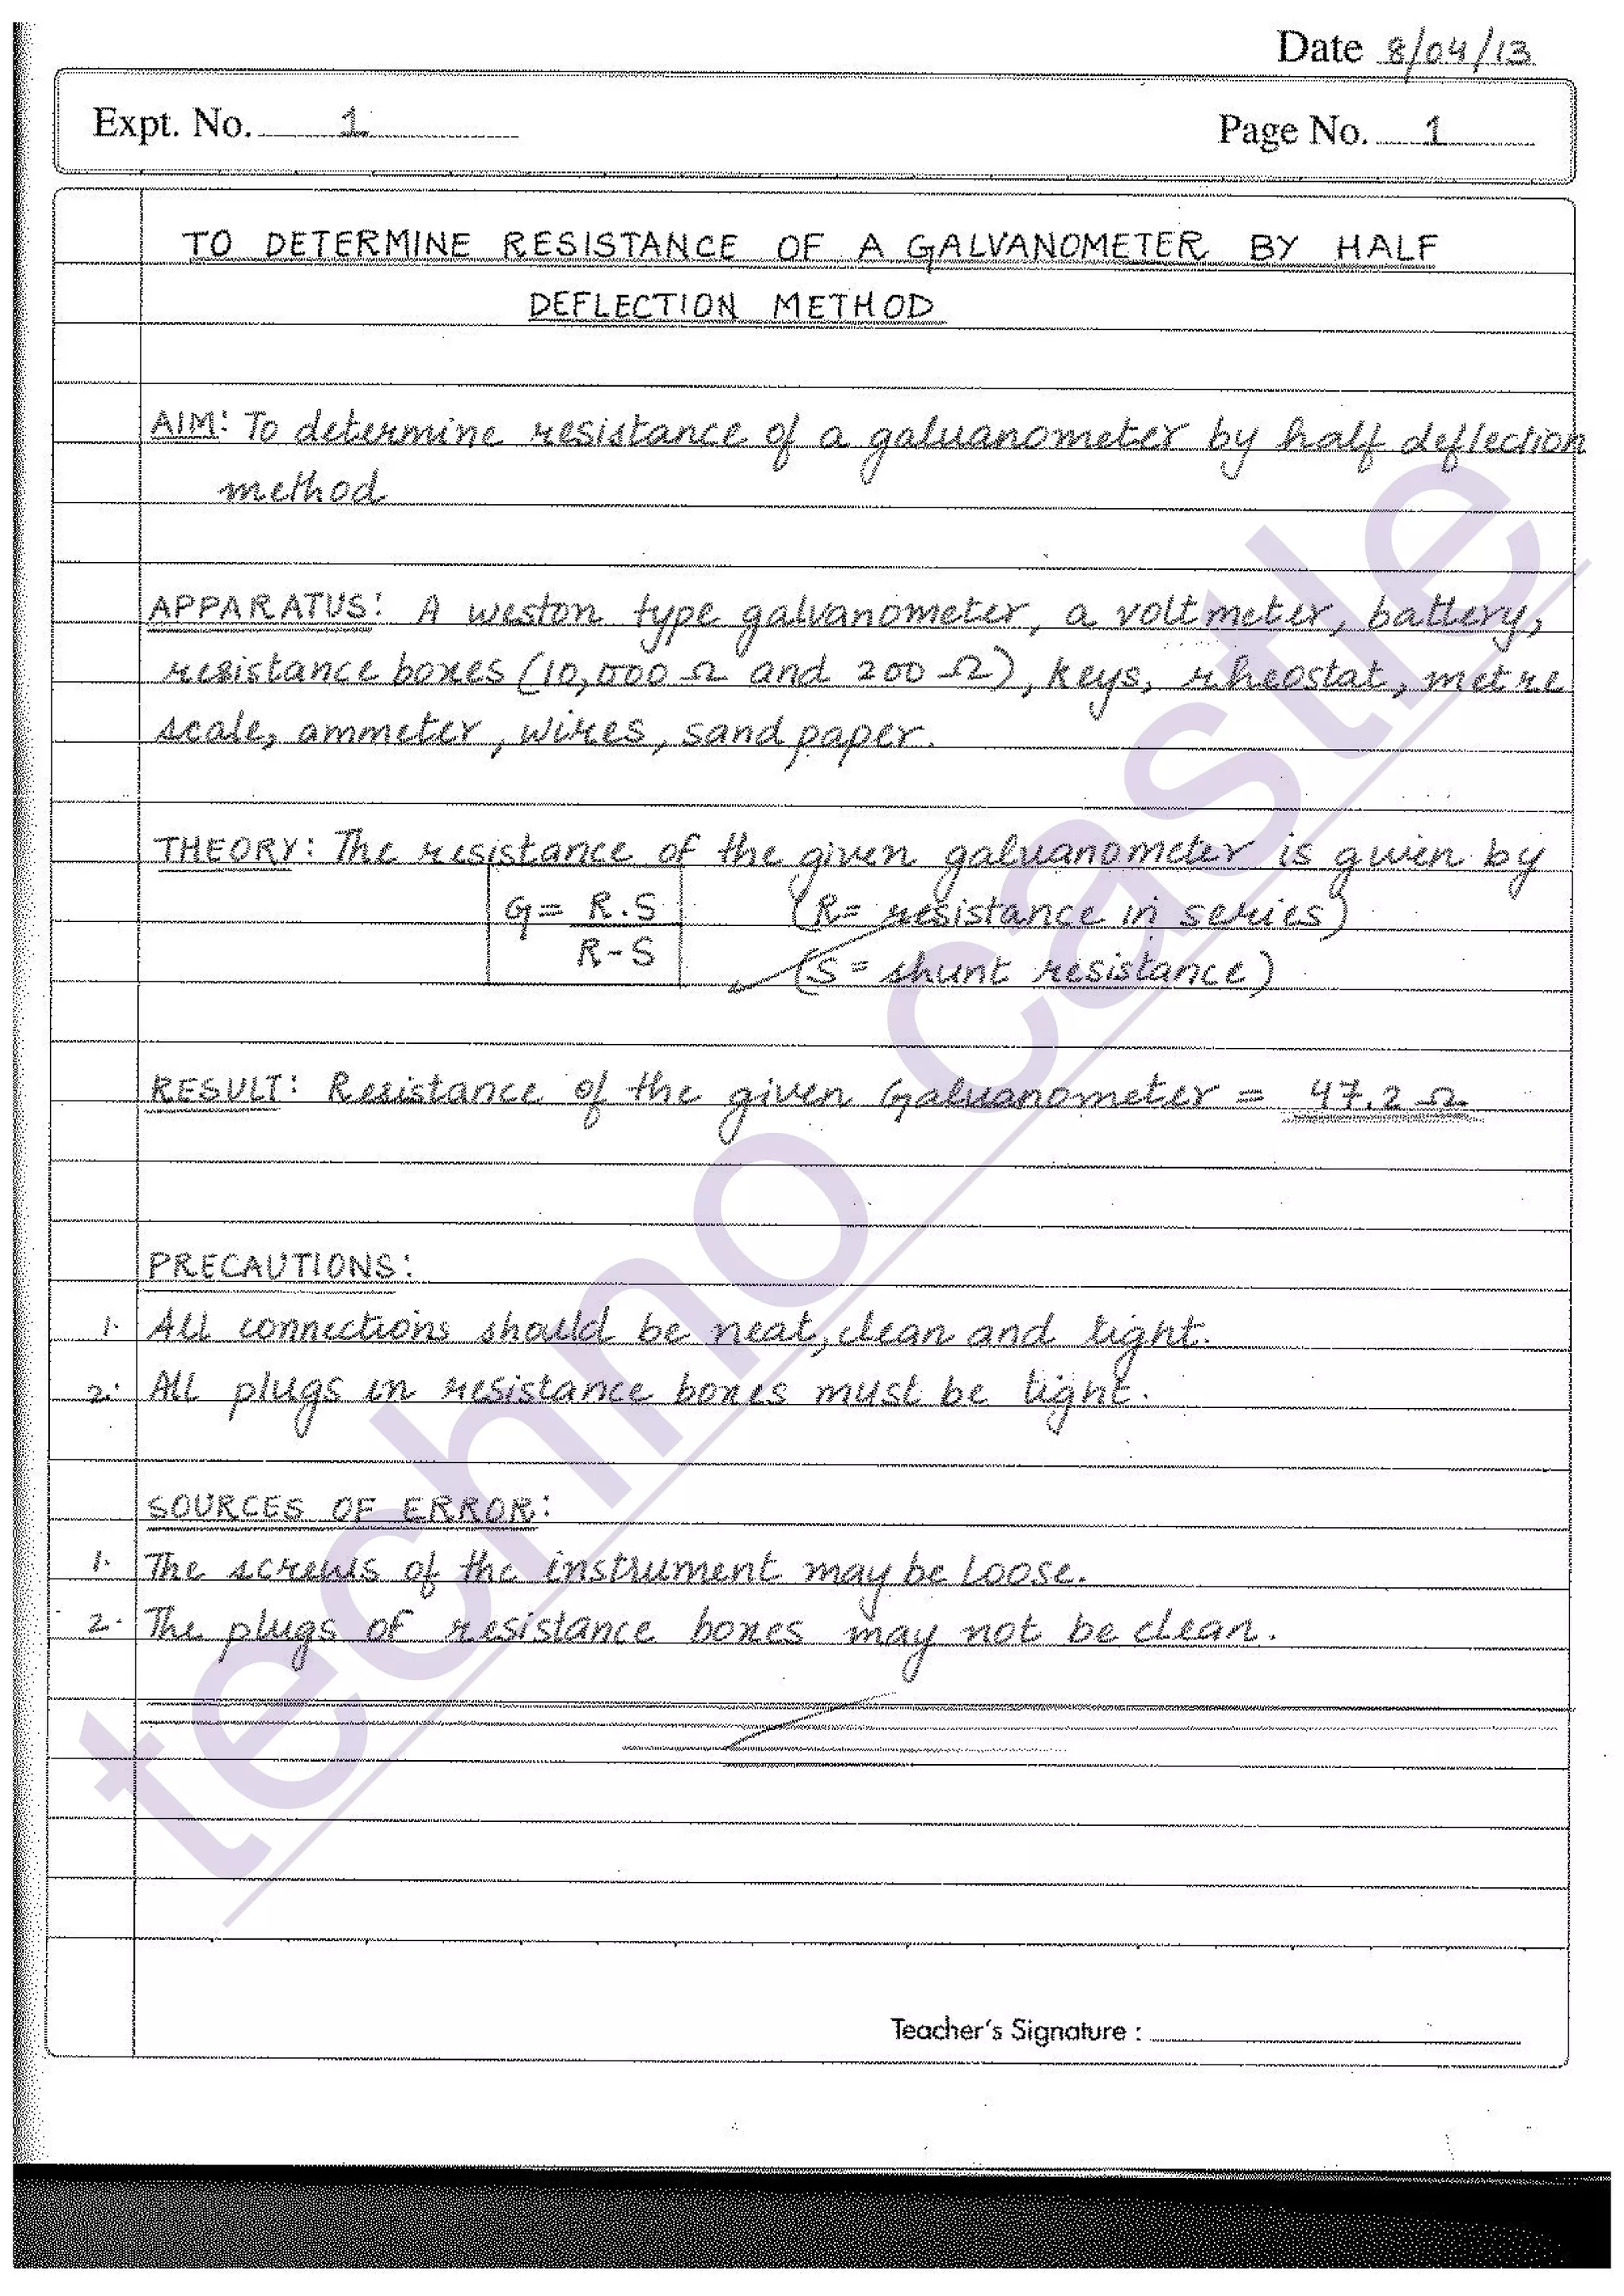 Date 8/04/13
Expt. No. 1
Page No. 1
TO DETERMINE RESISTANCE OF A GALVANOMETER BY HALF
DEFLECTION METHOD
AIM: To determine resistance of a galvanometer by half deflection
method
APPARATUS: A weston type galvanometer, a voltmeter, battery,
resistance boxes (10,000 Ω and 200 Ω), keys, rheostat, metre
scale, ammeter, wires, sand paper.
THEORY: The resistance of the given galvanometer is given by
G = R.S (R= resistance in series)
R-S (S = shunt resistance)
RESULT: Resistance of the given Galvanometer = 47.2 Ω
PRECAUTIONS:
1. All connections should be neat, clean and tight.
2. All plugs in resistance boxes must be tight.
SOURCES OF ERROR:
1. The screws of the instrument may be loose.
2. The plugs of resistance boxes may not be clean.
Teacher's Signature :
techno castle